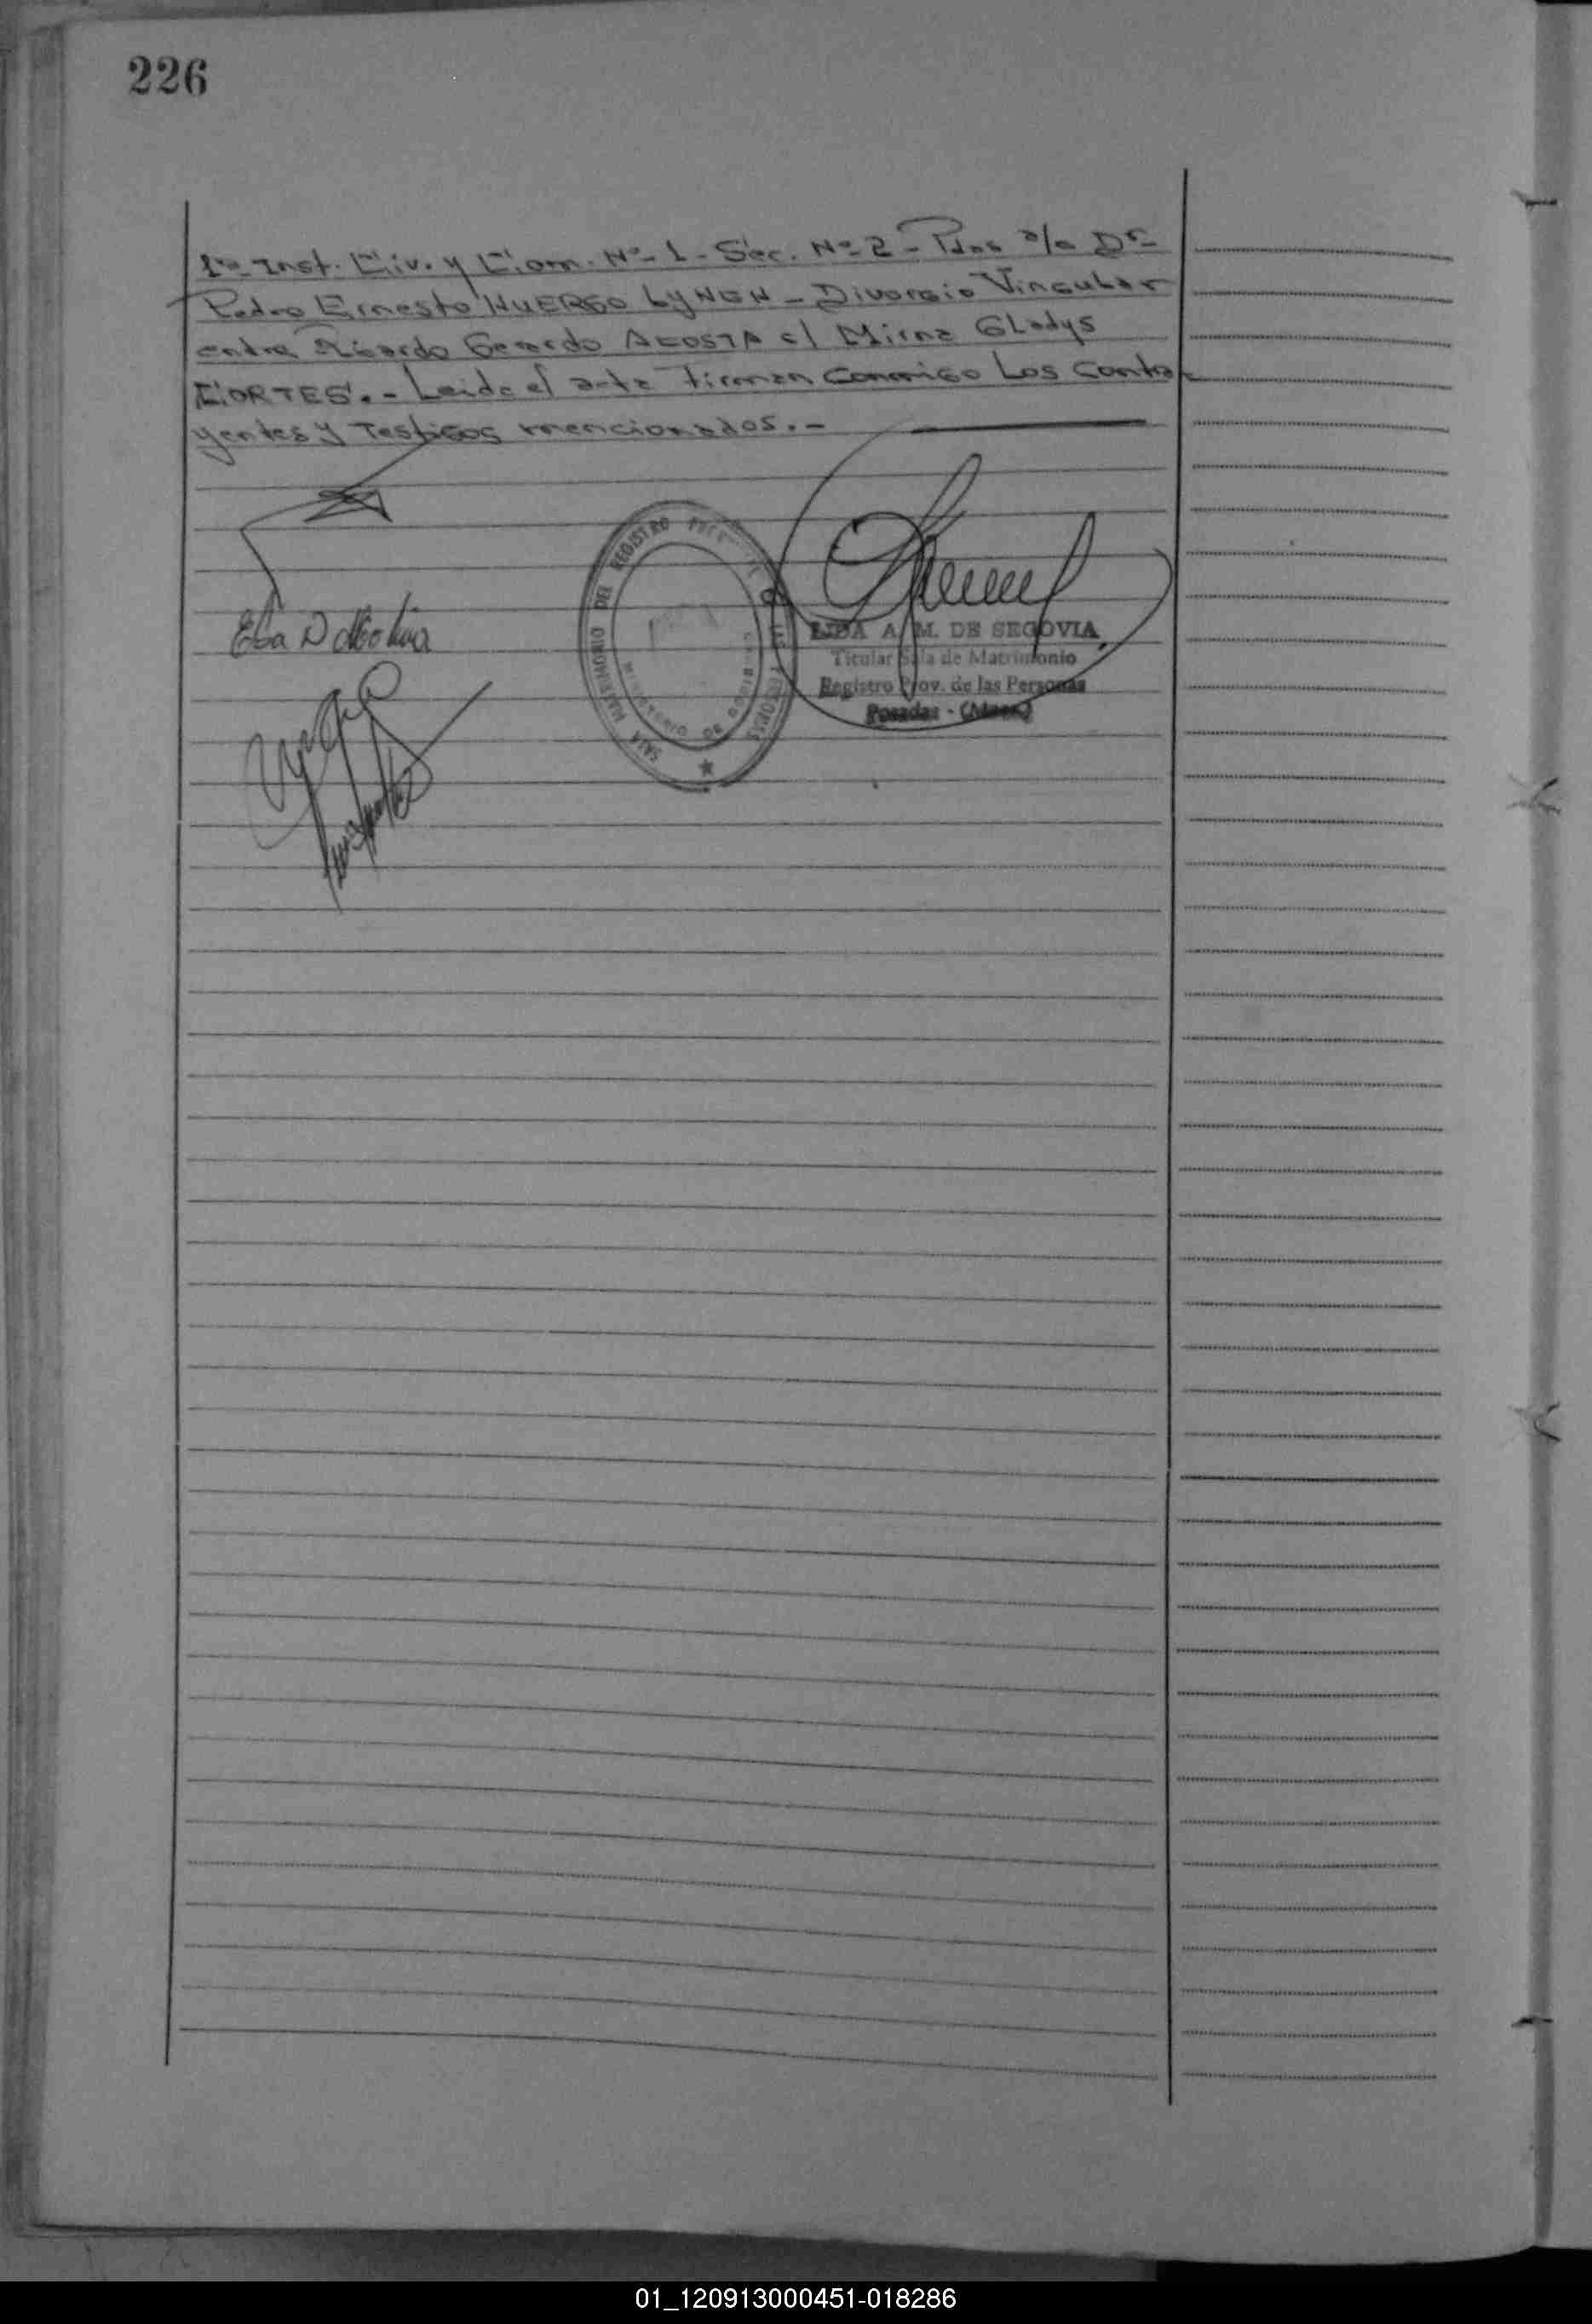 226
1ra Inst. Civ. y Com. Nº 1 - Sec. Nº 2 - Pdas a/c Dr-
Pedro Ernesto HUERGO LyNCH - Divorcio Vincular
entre Ricardo Gerardo ACOSTA c/ Mirna GLadys
CORTES.- Leida el acta Firman Conmigo Los Contra
yentes y Testigos mencionados.-
SALA MATRIMONIO DEL REGISTRO DE LAS PERSONAS
Elsa D Molina
LIDA A. M. DE SEGOVIA
Titular Sala de Matrimonio
Registro Prov. de las Personas
Posadas - (Mnes.)
01_120913000451-018286